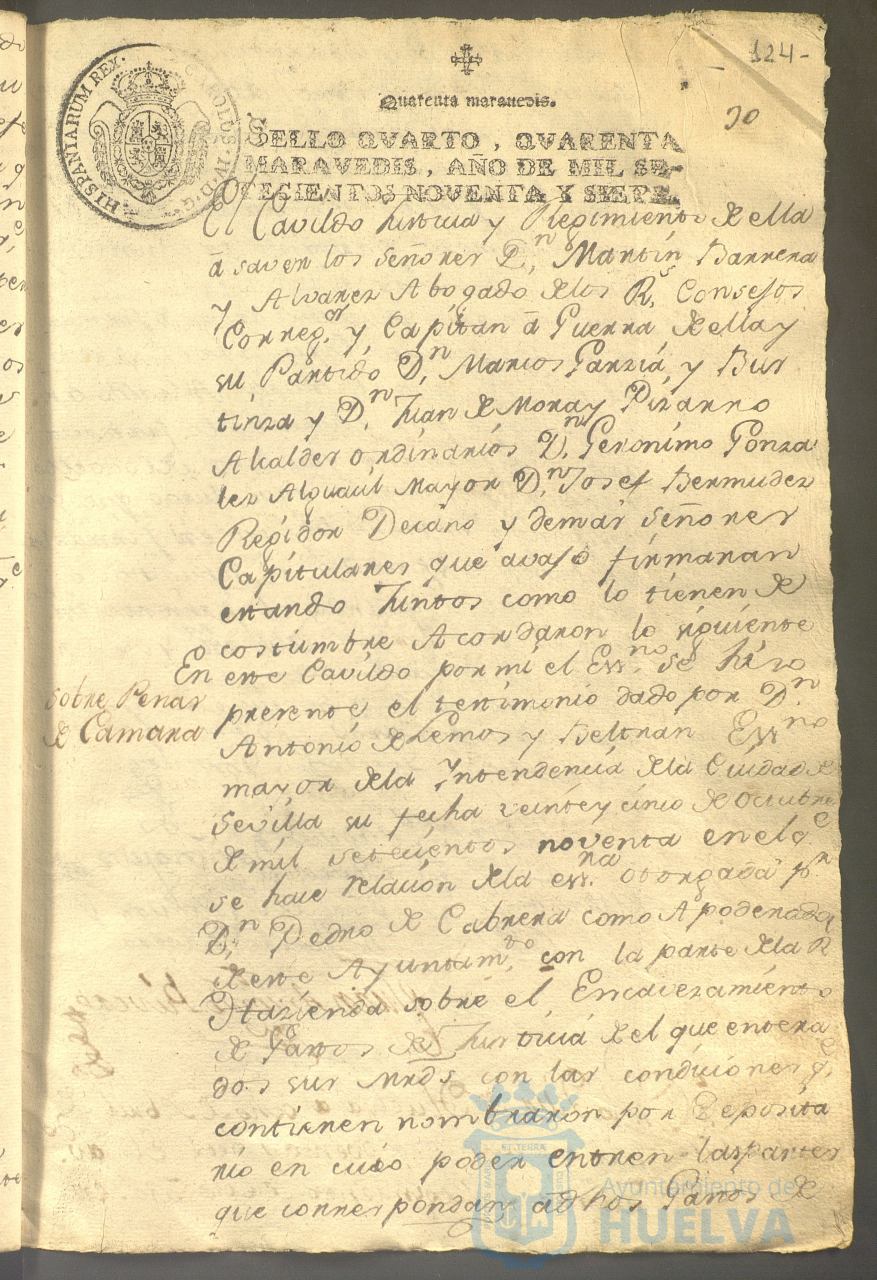 124-
30
Quarenta maravedis.
HISPANIARUM REX. CAROLUS. IV. D. G.
SELLO QVARTO, QVARENTA
MARAVEDIS, AÑO DE MIL SE-
TECIENTOS NOVENTA Y SIETE.
El Cavildo Justicia y Regimiento de ella
a saver los señores Dn. Martin Barrera
y Alvarez Abogado de los Rs. Consejos
Correg.or y Capitan a Guerra de ella y
su Partido Dn. Marcos Garzia, y Bur
tinza y Dn. Juan de Mora y Pizarro
Alcaldes ordinarios Dn. Geronimo Gonza
lez Alguasil Mayor Dn. Josef Bermudez
Regidor Decano y demas señores
Capitulares que avajo firmaran
estando Juntos como lo tienen de
costumbre Acordaron lo siguiente
Sobre Penas
de Camara
En este Cavildo por mi el Ess.no se hizo
presente el testimonio dado por Dn.
Antonio de Lemos y Beltran Ess.no
mayor de la Intendencia de la Ciudad de
Sevilla su fecha veinte y cinco de Octubre
de mil setecientos noventa en el qe
se hace relacion de la ess.na otorgada pr
Dn. Pedro de Cabrera como Apoderado
de este Ayuntam.to con la parte de la R
Hazienda sobre el Encavezamiento
de Gastos de Justicia de el que entera
dos sus Mrds con las condiciones qe
contienen nombraron por Deposita
rio en cuio poder entren las partes
que correspondan a dhos Gastos de
Ayuntamiento de
HUELVA